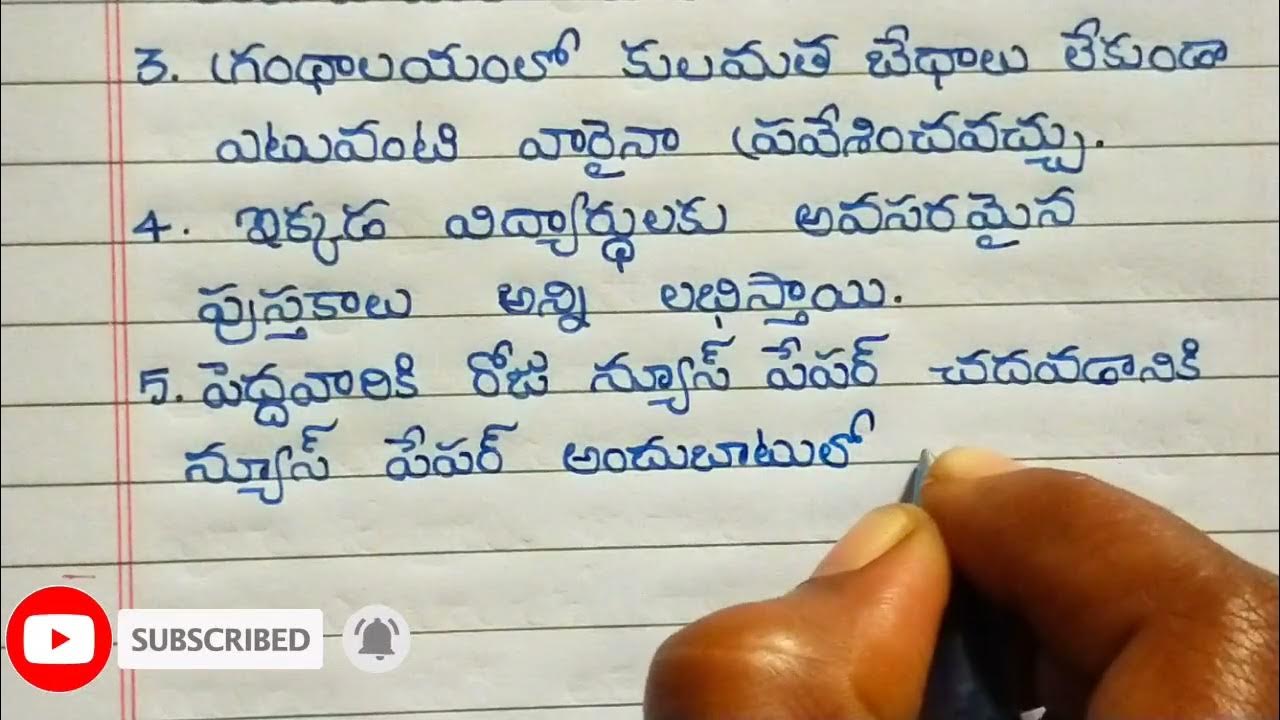 3. గ్రంథాలయంలో కులమత బేధాలు లేకుండా
ఎటువంటి వారైనా ప్రవేశించవచ్చు.
4. ఇక్కడ విద్యార్థులకు అవసరమైన
పుస్తకాలు అన్ని లభిస్తాయి.
5. పెద్దవారికి రోజు న్యూస్ పేపర్ చదవడానికి
న్యూస్ పేపర్ అందుబాటులో
SUBSCRIBED